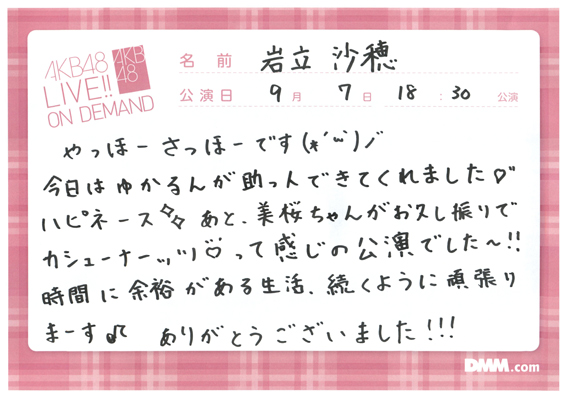 AKB48
LIVE!!
ON DEMAND
AKB
48
名前 岩立 沙穂
公演日 9月 7日 18:30 公演
やっほー さっほーです(*´ω`)ノ
今日はゆかるんが助っ人できてくれました♡
ハピネース✧✧ あと、美桜ちゃんがお久し振りで
カシューナーッツ♡って感じの公演でした〜!!
時間に余裕がある生活、続くように頑張り
まーす♫ ありがとうございました!!!
DMM.com